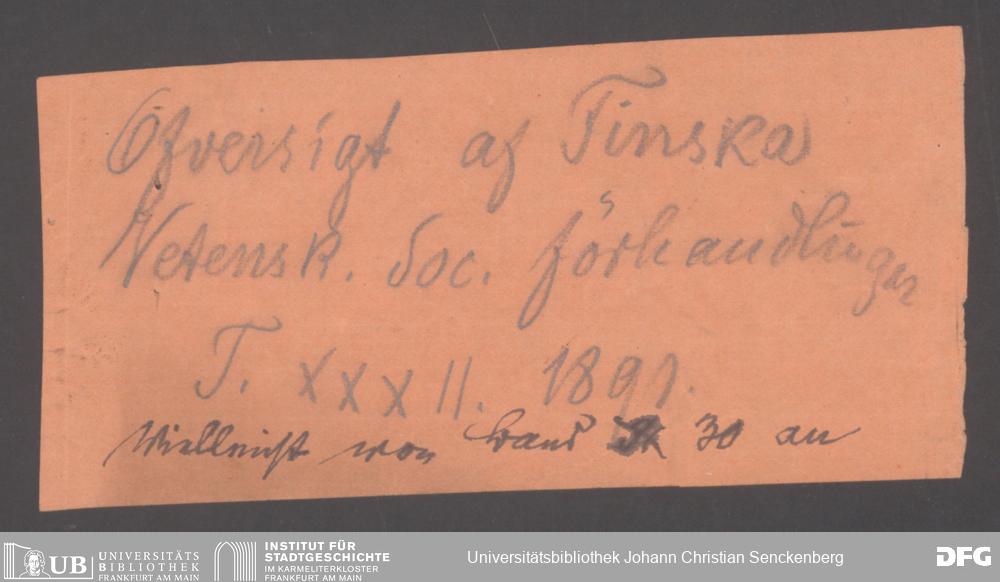 Öfversigt af Finska
Vetensk. Soc. förhandlingar
T. XXXII. 1891.
Vielleicht von Band 30 an
UB UNIVERSITÄTS
BIBLIOTHEK
FRANKFURT AM MAIN
INSTITUT FÜR
STADTGESCHICHTE
IM KARMELITERKLOSTER
FRANKFURT AM MAIN
Universitätsbibliothek Johann Christian Senckenberg
DFG